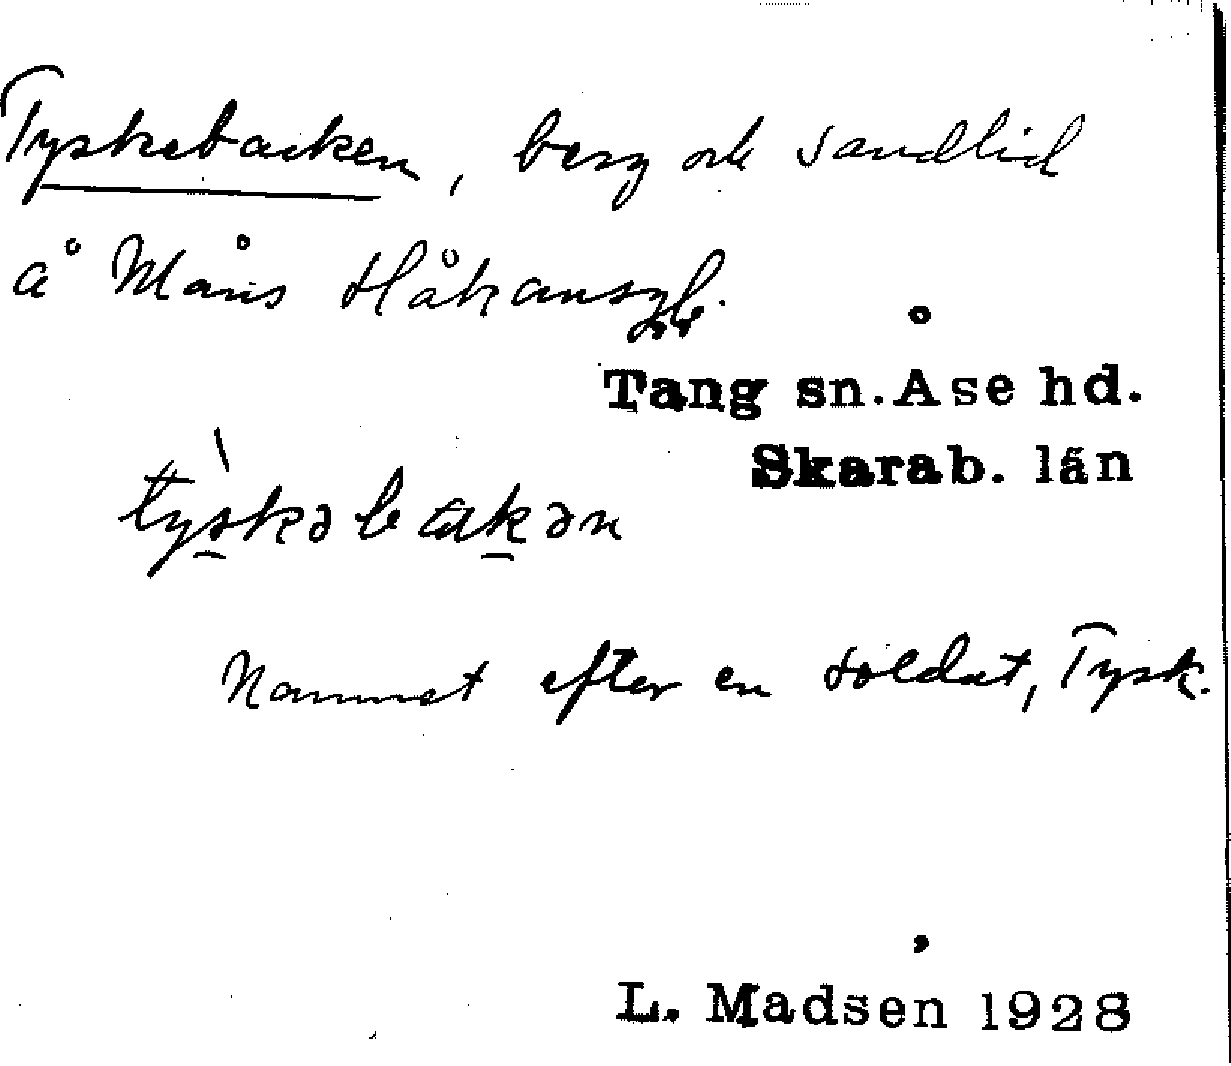 Tyskebacken, berg och sandlid
å Måns Håkansg.
Tang sn. Åse hd.
Skarab. län
tyskəbakən
Namnet efter en soldat, Tysk.
L. Madsen 1928